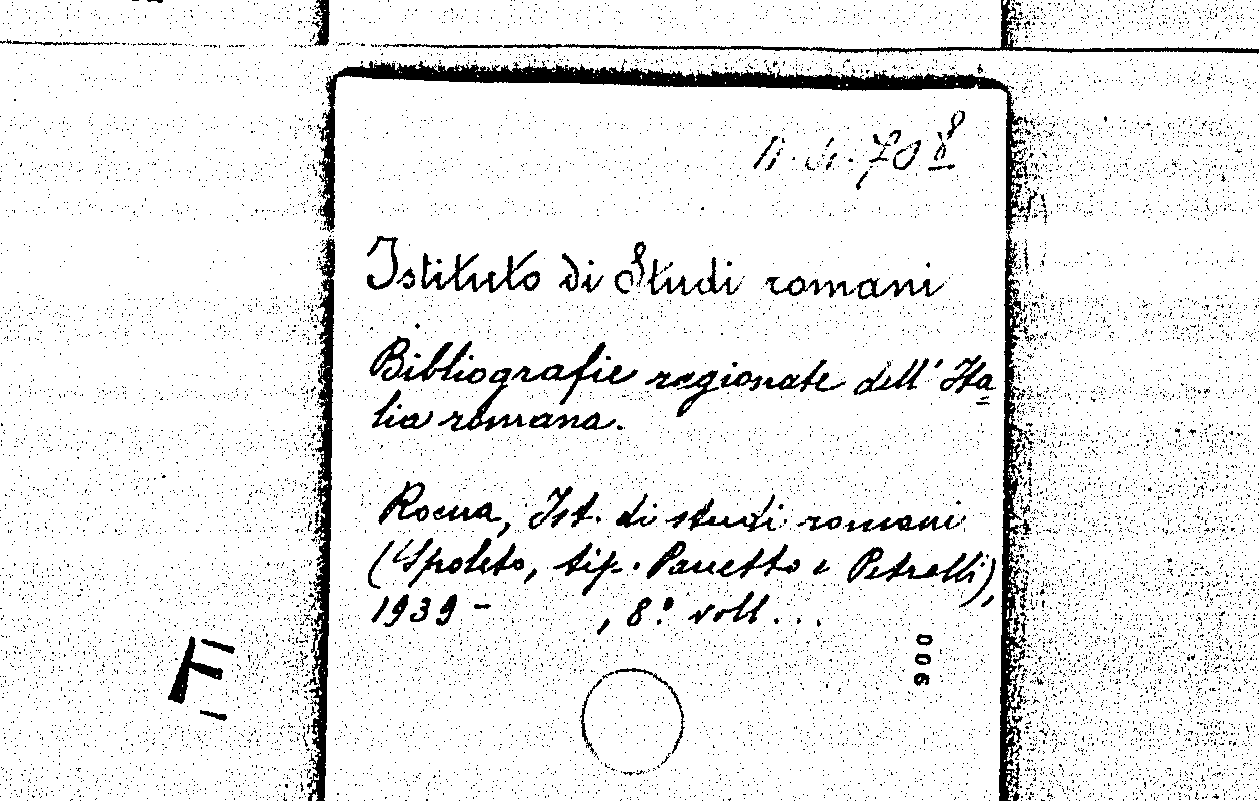 Istituto di Studi romani
Bibliografie ragionate dell' Ita
lia romana.
Roma, Ist. di studi romani
(Spoleto, tip. Panetto e Petrelli),
1939 - , 8.° voll...
006